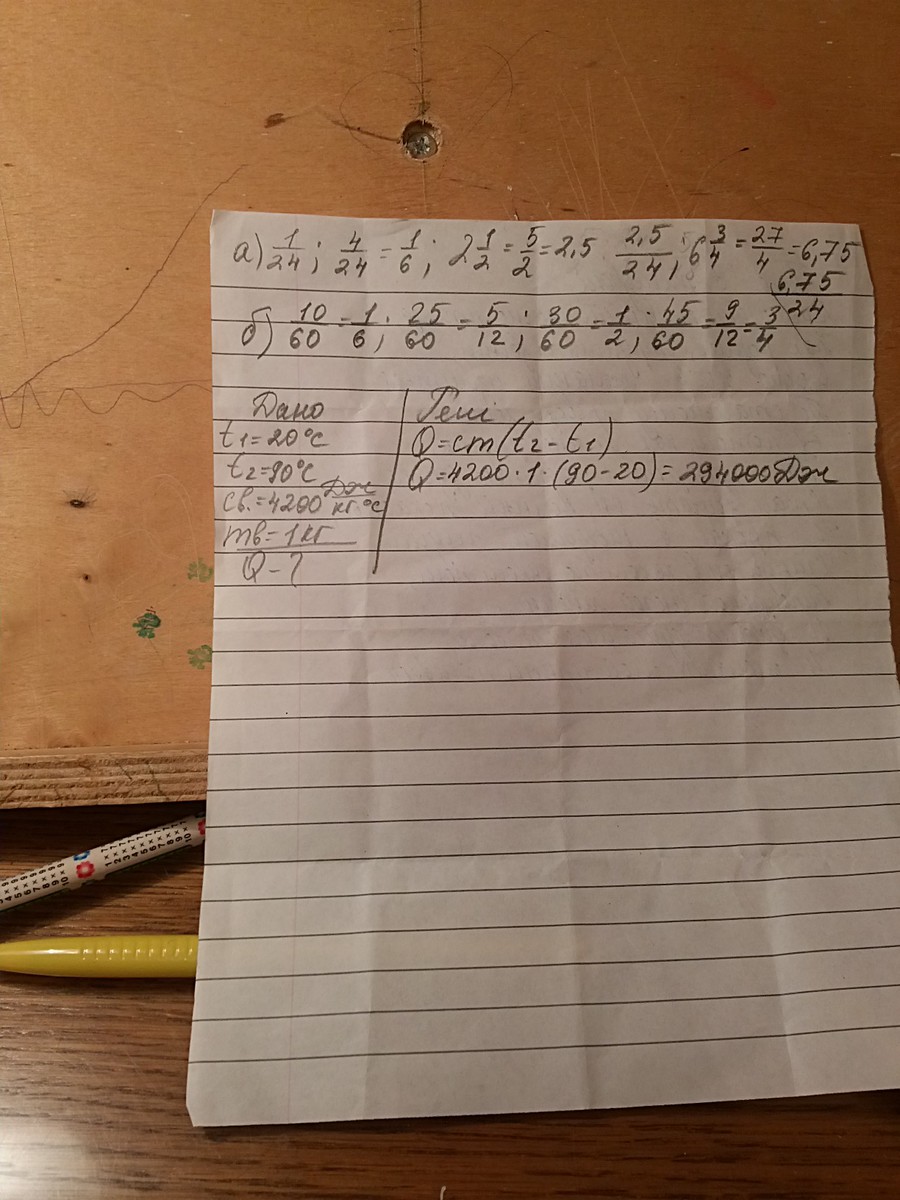 а) 1/24; 4/24 = 1/6; 2 1/2 = 5/2 = 2,5 2,5/24; 6 3/4 = 27/4 = 6,75
6,75/24
б) 10/60 = 1/6; 25/60 = 5/12; 30/60 = 1/2; 45/60 = 9/12 = 3/4
Дано
t1=20°C
t2=90°C
Cв.=4200 Дж/кг·°C
mв=1кг
Q-?
Q=cm(t2-t1)
Q=4200·1·(90-20)=294000Дж